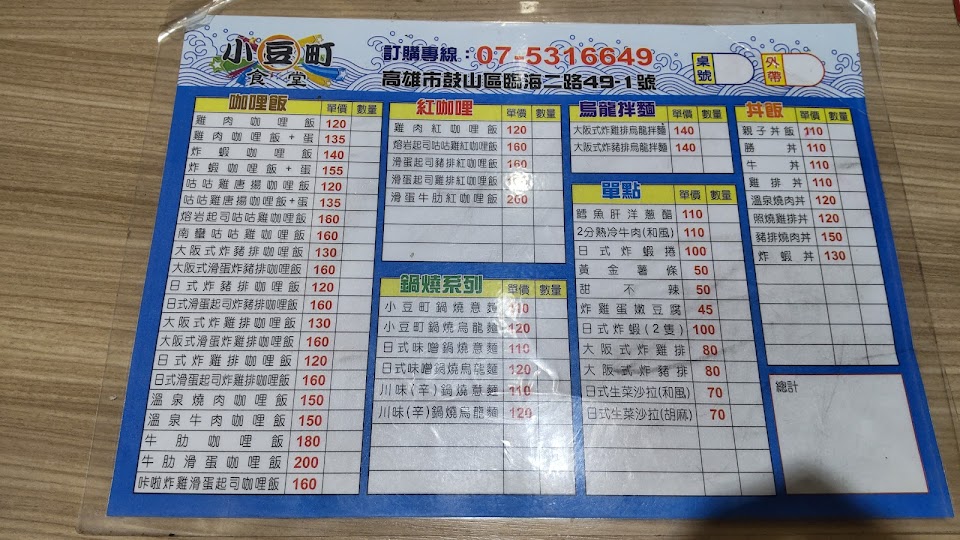 小豆町
食堂
訂購專線：07-5316649
高雄市鼓山區臨海二路49-1號
桌號
外帶
咖哩飯 單價 數量
雞肉咖哩飯 120
雞肉咖哩飯+蛋 135
炸蝦咖哩飯 140
炸蝦咖哩飯+蛋 155
咕咕雞唐揚咖哩飯 120
咕咕雞唐揚咖哩飯+蛋 135
熔岩起司咕咕雞咖哩飯 160
南蠻咕咕雞咖哩飯 160
大阪式炸豬排咖哩飯 130
大阪式滑蛋炸豬排咖哩飯 160
日式炸豬排咖哩飯 120
日式滑蛋起司炸豬排咖哩飯 160
大阪式炸雞排咖哩飯 130
大阪式滑蛋炸雞排咖哩飯 160
日式炸雞排咖哩飯 120
日式滑蛋起司炸雞排咖哩飯 160
溫泉燒肉咖哩飯 150
溫泉牛肉咖哩飯 150
牛肋咖哩飯 180
牛肋滑蛋咖哩飯 200
咔啦炸雞滑蛋起司咖哩飯 160
紅咖哩 單價 數量
雞肉紅咖哩飯 120
熔岩起司咕咕雞紅咖哩飯 160
滑蛋起司豬排紅咖哩飯 160
滑蛋起司雞排紅咖哩飯
滑蛋牛肋紅咖哩飯 200
鍋燒系列 單價 數量
小豆町鍋燒意麵 110
小豆町鍋燒烏龍麵 120
日式味噌鍋燒意麵 110
日式味噌鍋燒烏龍麵 120
川味(辛)鍋燒意麵 110
川味(辛)鍋燒烏龍麵 120
烏龍拌麵 單價 數量
大阪式炸雞排烏龍拌麵 140
大阪式炸豬排烏龍拌麵 140
單點 單價 數量
鱈魚肝洋蔥醋 110
2分熟冷牛肉(和風) 110
日式炸蝦捲 100
黃金薯條 50
甜不辣 50
炸雞蛋嫩豆腐 45
日式炸蝦(2隻) 100
大阪式炸雞排 80
大阪式炸豬排 80
日式生菜沙拉(和風) 70
日式生菜沙拉(胡麻) 70
丼飯 單價 數量
親子丼飯 110
勝丼 110
牛丼 110
雞排丼 110
溫泉燒肉丼 120
照燒雞排丼 120
豬排燒肉丼 150
炸蝦丼 130
總計